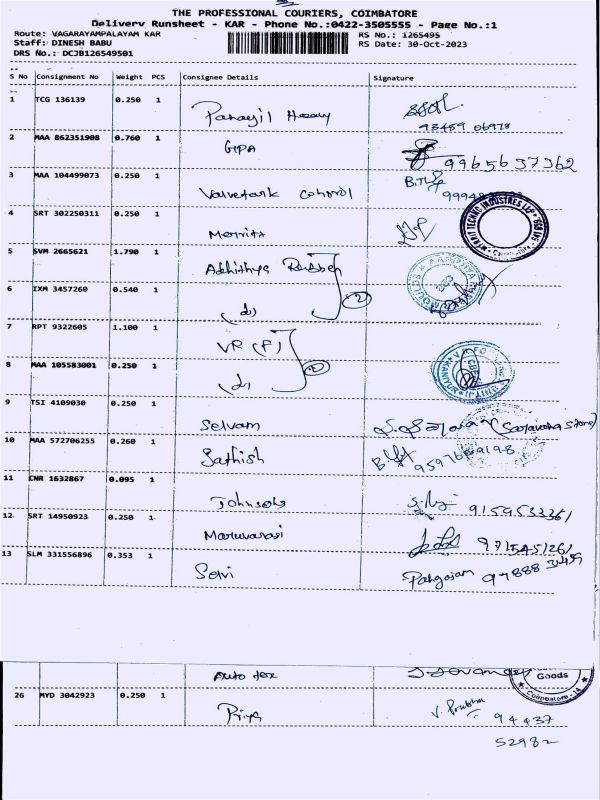 THE PROFESSIONAL COURIERS, COIMBATORE
Delivery Runsheet - KAR - Phone No.:0422-3505555 - Page No.:1
Route: VAGARAYAMPALAYAM KAR
RS No.: 1265495
Staff: DINESH BABU
RS Date: 30-Oct-2023
DRS No.: DCJB126549501
S No Consignment No Weight PCS Consignee Details Signature
1 TCG 136139 0.250 1
93459 06978
2 MAA 862351908 0.760 1 GIPA
9965637362
3 MAA 104499073 0.250 1
Valvetank Control
4 SRT 302250311 0.250 1
Merritt
5 SVM 2665621 1.790 1 Adhithya Rubber
6 IXM 3457260 0.540 1
(d) (2)
7 RPT 9322605 1.100 1 VR (P)
8 MAA 105583001 0.250 1
(d) (2)
9 TSI 4109030 0.250 1
Selvam (Saravana Store)
10 MAA 572706255 0.260 1 Sathish
9597689198
11 CNR 1632867 0.095 1
Johnsons 9159533361
12 SRT 14950923 0.250 1
Maruvarasi 9715451261
13 SLM 331556896 0.353 1 Selvi
97888
Auto tex
Goods
Coimbatore - 14
26 MYD 3042923 0.250 1 Priya
V. Prabhu 94437
52982